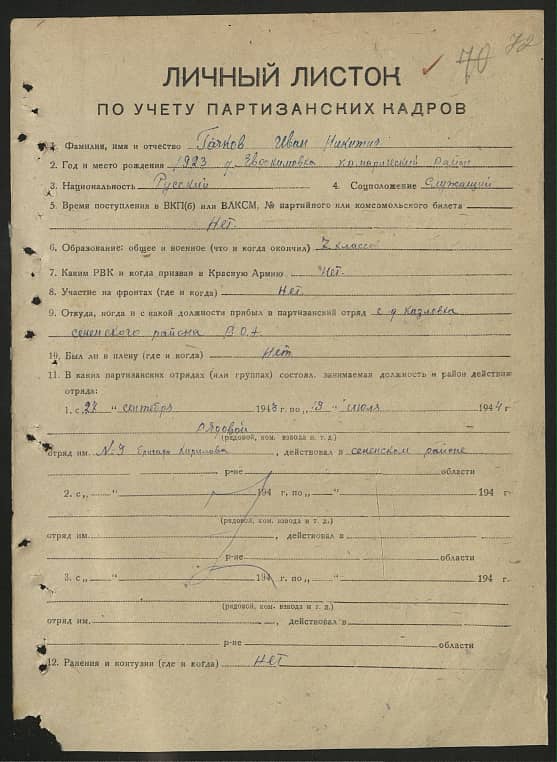 70 72
ЛИЧНЫЙ ЛИСТОК
ПО УЧЕТУ ПАРТИЗАНСКИХ КАДРОВ
1. Фамилия, имя и отчество Иван Никитич
2. Год и место рождения 1923 д. Евдокимовка комаричский район
3. Национальность Русский 4. Соцположение Служащий
5. Время поступления в ВКП(б) или ВЛКСМ, № партийного или комсомольского билета
Нет.
6. Образование: общее и военное (что и когда окончил) 7 классов
7. Каким РВК и когда призван в Красную Армию Нет.
8. Участие на фронтах (где и когда) Нет.
9. Откуда, когда и с какой должности прибыл в партизанский отряд с д. Казловка
сененского района В.О.
10. Был ли в плену (где и когда) Нет
11. В каких партизанских отрядах (или группах) состоял, занимаемая должность и район действия
отряда:
1. с „ 27 " сентября 1943 г. по „ 9 " июля 1944 г
Рядовой
(рядовой, ком. взвода и т. д.)
отряд им. № 9 бригада Кирилова, действовал в сененском районе
р-не области
2. с „ " 194 г. по „ " 194 г.
(рядовой, ком. взвода и т. д.)
отряд им. , действовал в
р-не области
3. с „ " 194 г. по „ " 194 г.
(рядовой, ком. взвода и т. д.)
отряд им. , действовал в
р-не области
12. Ранения и контузии (где и когда) НЕТ